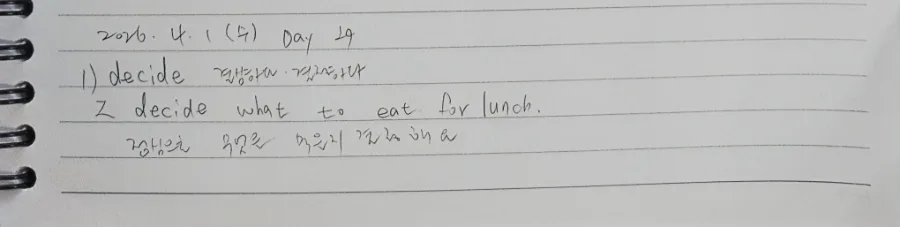 2026. 4. 1 (수) Day 29
1) decide 결심하다. 결정하다
I decide what to eat for lunch.
점심으로 무엇을 먹을지 결정해요